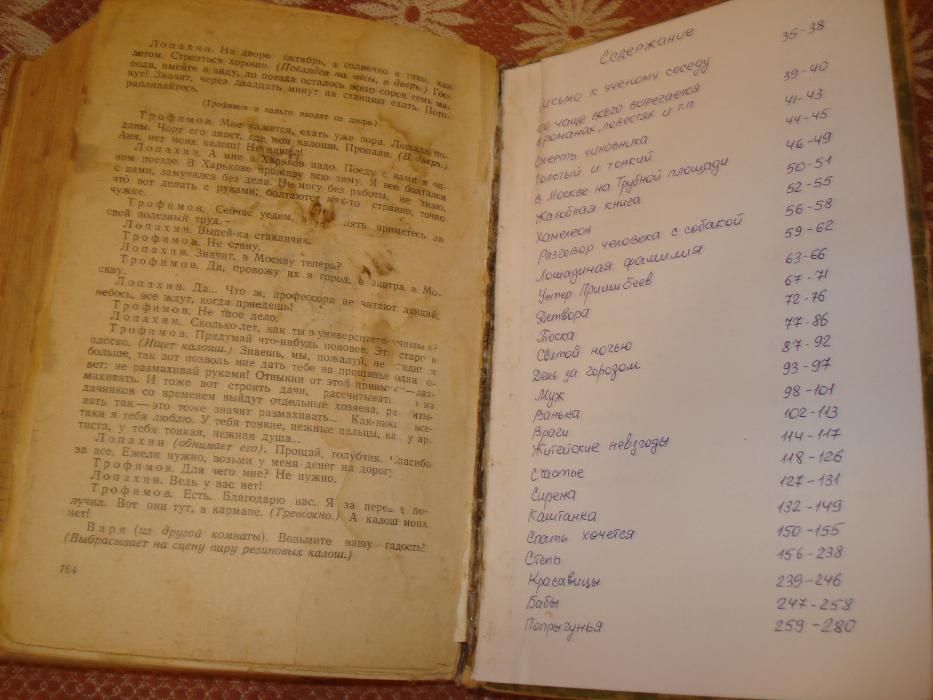 Лопахин. На дворе октябрь, а солнечно и тихо, как
летом. Строиться хорошо. (Поглядев на часы, в дверь.) Гос-
пода, имейте в виду, до поезда осталось всего сорок семь ми-
нут! Значит, через двадцать минут на станцию ехать. Пото-
рапливайтесь.
(Трофимов в пальто входит со двора.)
Трофимов. Мне кажется, ехать уже пора. Лошади по-
даны. Чорт его знает, где мои калоши. Пропали. (В дверь.)
Аня, нет моих калош! Не нашел!
Лопахин. А мне в Харьков надо. Поеду с вами в од-
ном поезде. В Харькове проживу всю зиму. Я все болтался
с вами, замучился без дела. Не могу без работы, не знаю,
что вот делать с руками; болтаются как-то странно, точно
чужие.
Трофимов. Сейчас уедем, и пять приметесь за
свой полезный труд.
Лопахин. Выпей-ка стаканчик.
Трофимов. Не стану.
Лопахин. Значит, в Москву теперь?
Трофимов. Да, провожу их в город, а завтра в Мо-
скву.
Лопахин. Да... Что ж, профессора не читают лекций,
небось, все ждут, когда приедешь!
Трофимов. Не твое дело.
Лопахин. Сколько лет, как ты в университете учишься?
Трофимов. Придумай что-нибудь поновее. Это старо и
плоско. (Ищет калоши.) Знаешь, мы, пожалуй, не
больше, так вот позволь мне дать тебе на прощанье один
вет: не размахивай руками! Отвыкни от этой привычки — раз-
махивать. И тоже вот строить дачи, рассчитывать на
дачников со временем выйдут отдельные хозяева,
вать так — это тоже значит размахивать... Как-никак все-
таки я тебя люблю. У тебя тонкие, нежные пальцы, как у ар-
тиста, у тебя тонкая, нежная душа...
Лопахин (обнимает его). Прощай, голубчик. Спасибо
за все. Ежели нужно, возьми у меня денег на дорогу.
Трофимов. Для чего мне? Не нужно.
Лопахин. Ведь у вас нет!
Трофимов. Есть. Благодарю вас. Я за перевод по-
лучил. Вот они тут, в кармане. (Тревожно.) А калош моих
нет!
Варя (из другой комнаты). Возьмите вашу гадость!
(Выбрасывает на сцену пару резиновых калош.)
764
Содержание
исьмо к ученому соседу 35-38
о чаще всего встречается
романах, повестях и т.п. 39-40
Смерть чиновника 41-43
Толстый и тонкий 44-45
в Москве на Трубной площади 46-49
Жалобная книга 50-51
Хамелеон 52-55
Разговор человека с собакой 56-58
Лошадиная фамилия 59-62
Унтер Пришибеев 63-66
Детвора 67-71
Тоска 72-76
Святой ночью 77-86
День за городом 87-92
Муж 93-97
Ванька 98-101
Враги 102-113
Житейские невзгоды 114-117
Счастье 118-126
Сирена 127-131
Каштанка 132-149
Спать хочется 150-155
Степь 156-238
Красавицы 239-246
Бабы 247-258
Попрыгунья 259-280